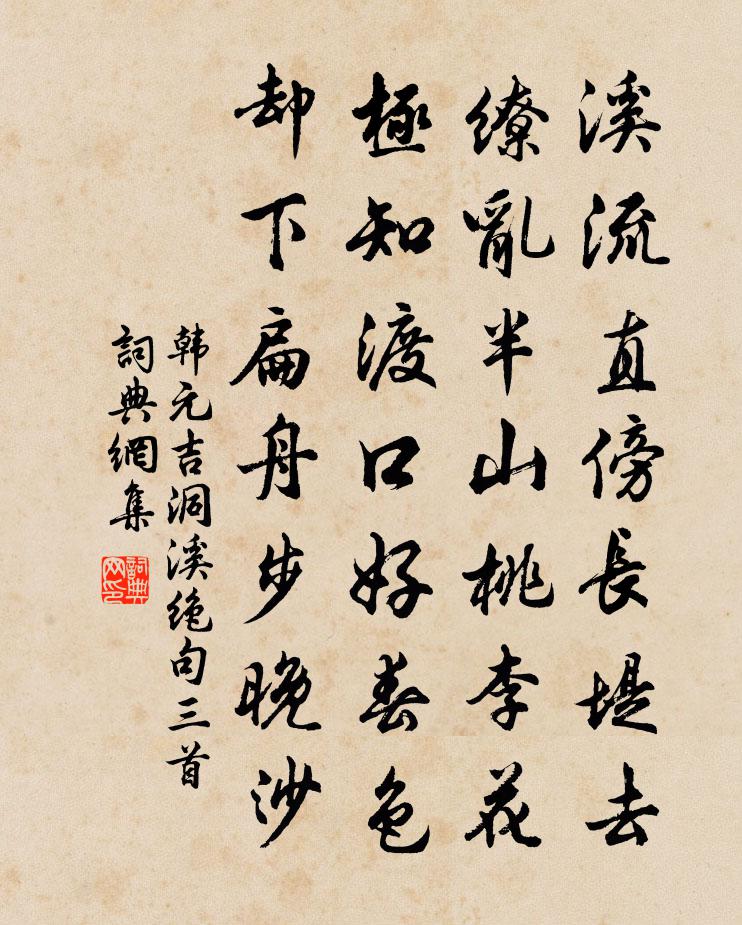 溪流直傍長堤去
繚亂半山桃李花
極知渡口好春色
却下扁舟步晚沙
韩元吉洞溪绝句三首
詞典網集
詞典網印